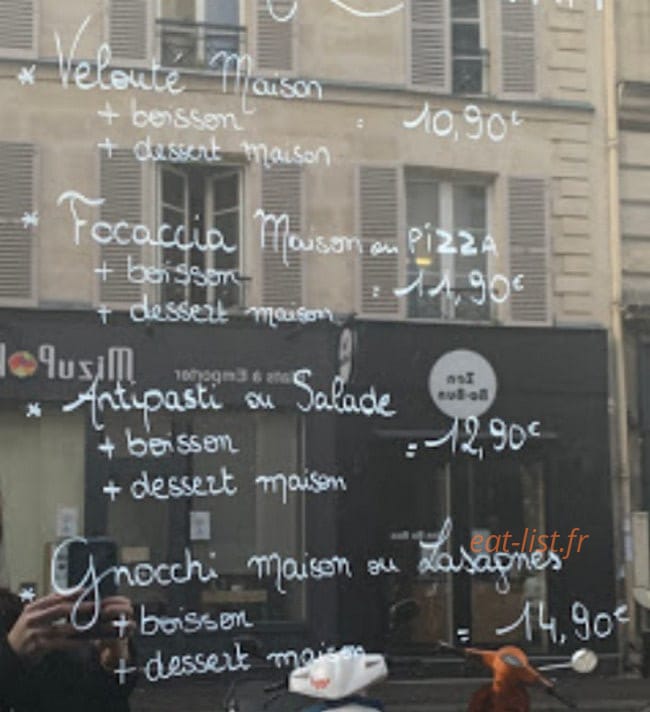 * Velouté Maison
+ boisson : 10,90€
+ dessert maison
* Focaccia Maison ou PiZZA
+ boisson : 11,90€
+ dessert maison
MizuPok
Plats à Emporter
Zen
Bo-Bun
* Antipasti ou Salade
+ boisson = 12,90€
+ dessert maison
eat-list.fr
* Gnocchi maison ou Lasagnes
+ boisson = 14,90€
+ dessert maison